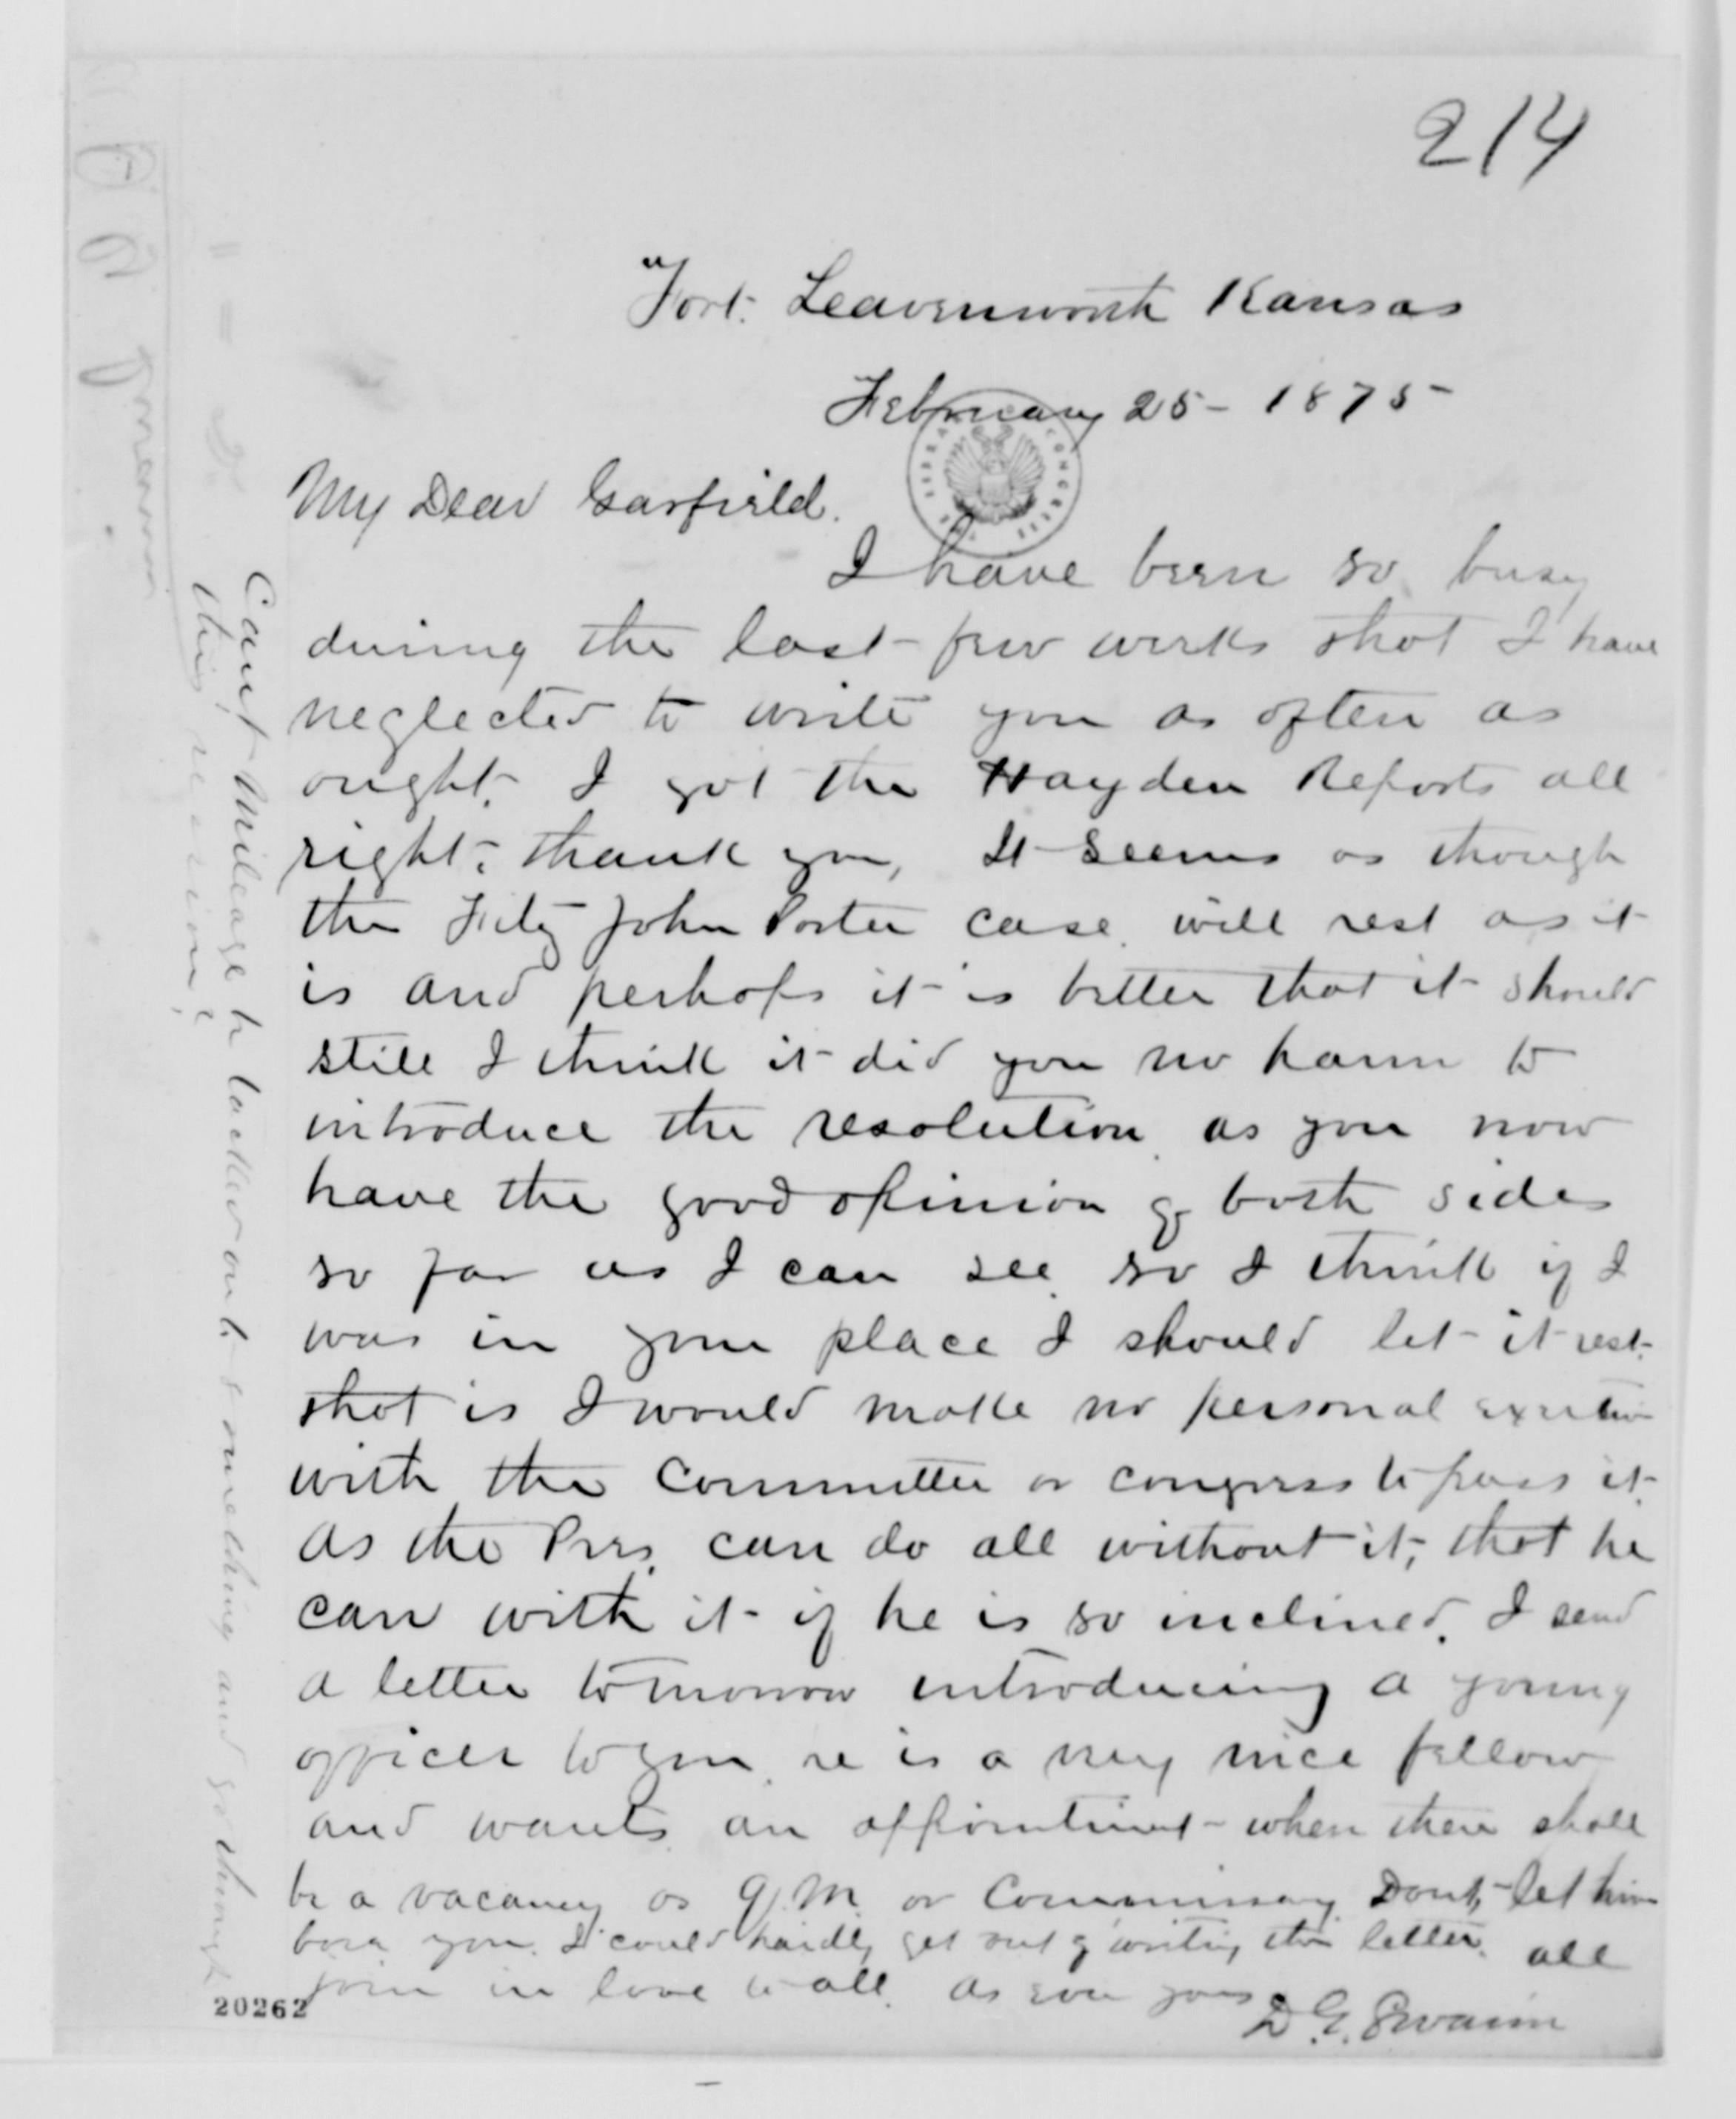 214
Fort. Leavenworth Kansas
February 25 - 1875 -
My Dear Garfield.
I have been so busy
during the last few weeks that I have
neglected to write you as often as
ought. I got the Hayden Reports all
right. thank you, It seems as though
the Fitz John Porter case will rest as it
is and perhaps it is better that it should
still I think it did you no harm to
introduce the resolution as you now
have the good opinion of both sides
so far as I can see so I think if I
was in your place I should let it rest.
that is I would make no personal exertion
with the Committee or congress to pass it.
as the Pres. can do all without it, that he
can with it if he is so inclined. I send
a letter tomorrow introducing a young
officer to you he is a very nice fellow
and wants an appointment - when there shall
be a vacancy as Q.M. or Commissary Dont let him
bore you. I could hardly get out of writing the letter. all
join in love to all. As ever yours
D. G. Swaim
Can't Mileage be tacked on to something and go through
this session?
20262